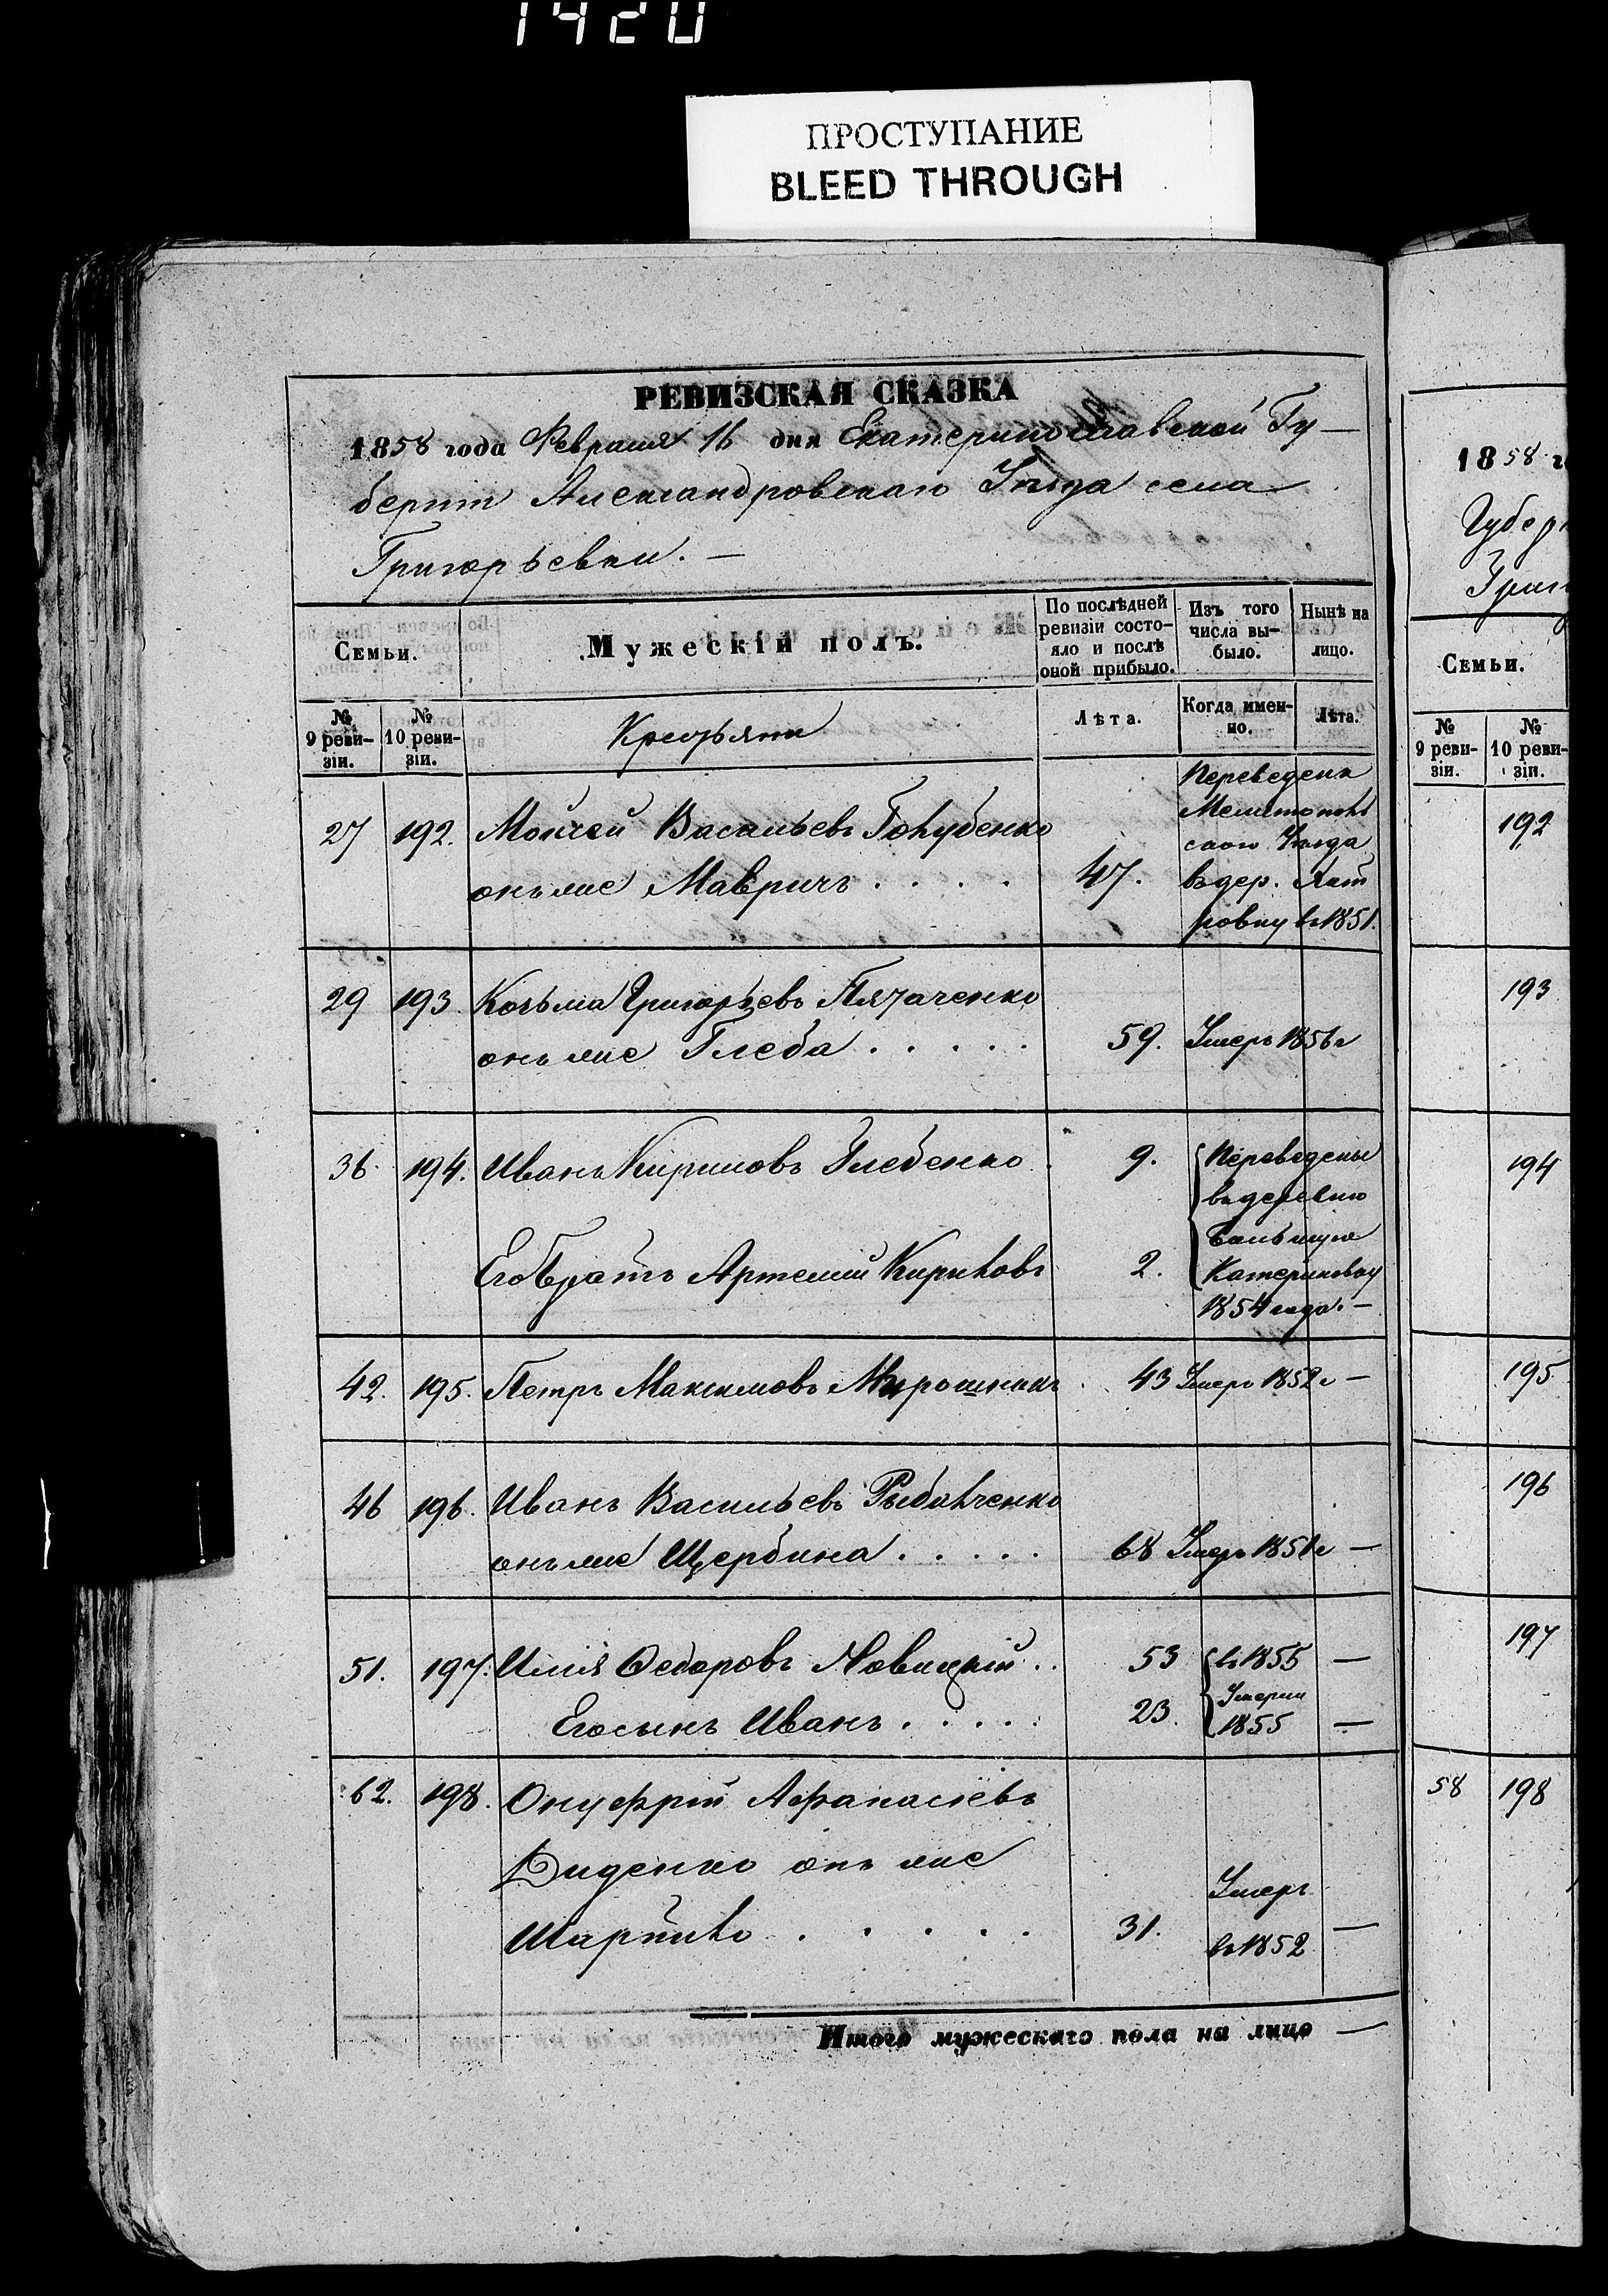 1420
ПРОСТУПАНИЕ
BLEED THROUGH
РЕВИЗСКАЯ СКАЗКА
1858 года Февраля 16 дня Екатеринославской Гу—
берніи Александровскаго Уѣзда села
Григорьевки. —
Семьи.
Мужескій полъ.
По послѣдней ревизіи состо-
яло и послѣ оной прибыло.
Изъ того числа вы-
было.
Нынѣ на лицо.
№ 9 реви-
зіи.
№ 10 реви-
зіи.
Крестьяне
Лѣта.
Когда имен-
но.
Лѣта.
27 192. Моисей Васильевъ Голубенко
онъ же Мавричъ . . . . 47.
Переведенъ
Мелитополь
скаго Уѣзда
въ дер.
ровку въ 1851.
29 193. Козьма Григорьевъ
онъ же Глеба . . . . . 59. Умеръ 1856 г
36. 194. Иванъ Кириловъ Глебенко . 9.
Его братъ Артемій Кириловъ 2.
Переведены
въ деревню
Большую
Катериновку
1854 года. —
42. 195. Петръ Максимовъ Мирошникъ . 43 Умеръ 1852 г —
46 196. Иванъ Васильевъ Рыбальченко
онъ же Щербина . . . . . 68 Умеръ 1851 г —
51. 197. Илья Федоровъ Новицкій . . 53 въ 1855 —
Умерли
Его сынъ Иванъ . . . . . 23. 1855 —
62. 198. Онуфрій Афанасіевъ
Диденко онъ же
Шарпило . . . . . 31.
Умеръ
въ 1852 —
Итого мужескаго пола на лицо —
1858 г
Губер
Григ
Семьи.
№ 9 реви-
зіи.
№ 10 реви-
зіи.
192
193
194
195
196
197
58 198